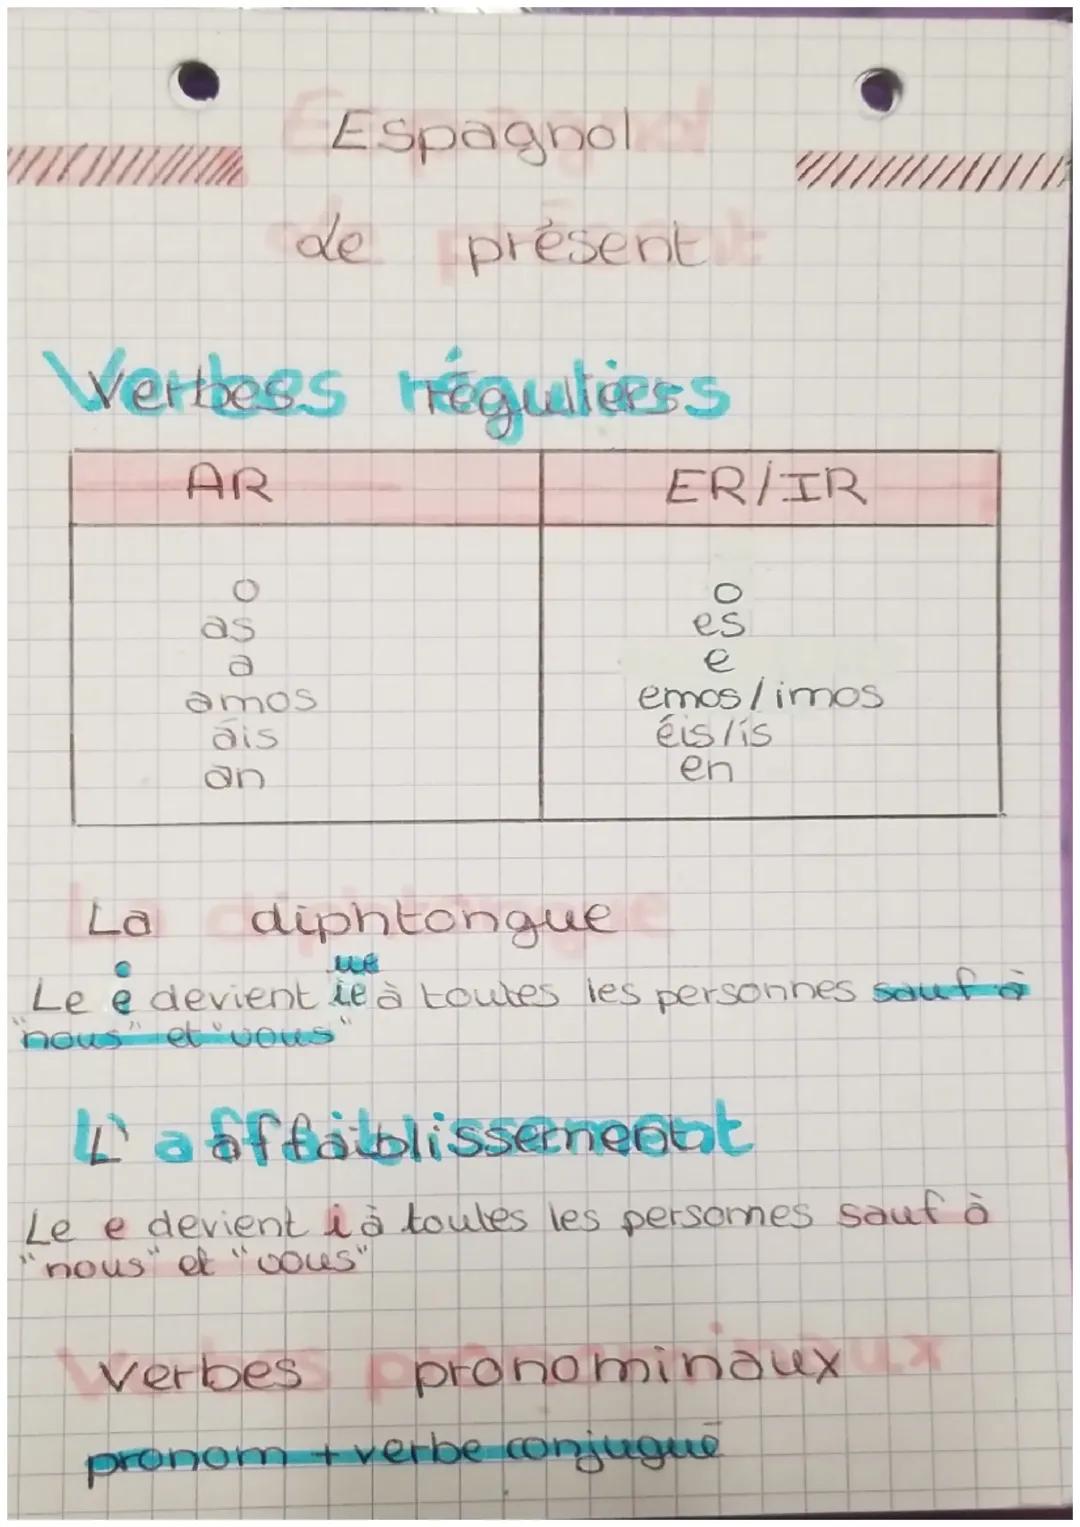 Espagnol
de présent
Verbes réguliers
AR
ER/IR
o
as
a
amos
áis
an
o
es
e
emos/imos
éis/ís
en
La diphtongue
o ue
Le e devient ie à toutes les personnes sauf à
"nous" et "vous"
L'affaiblissement
Le e devient i à toutes les personnes sauf à
"nous" et "vous"
Verbes pronominaux
pronom + verbe conjugué